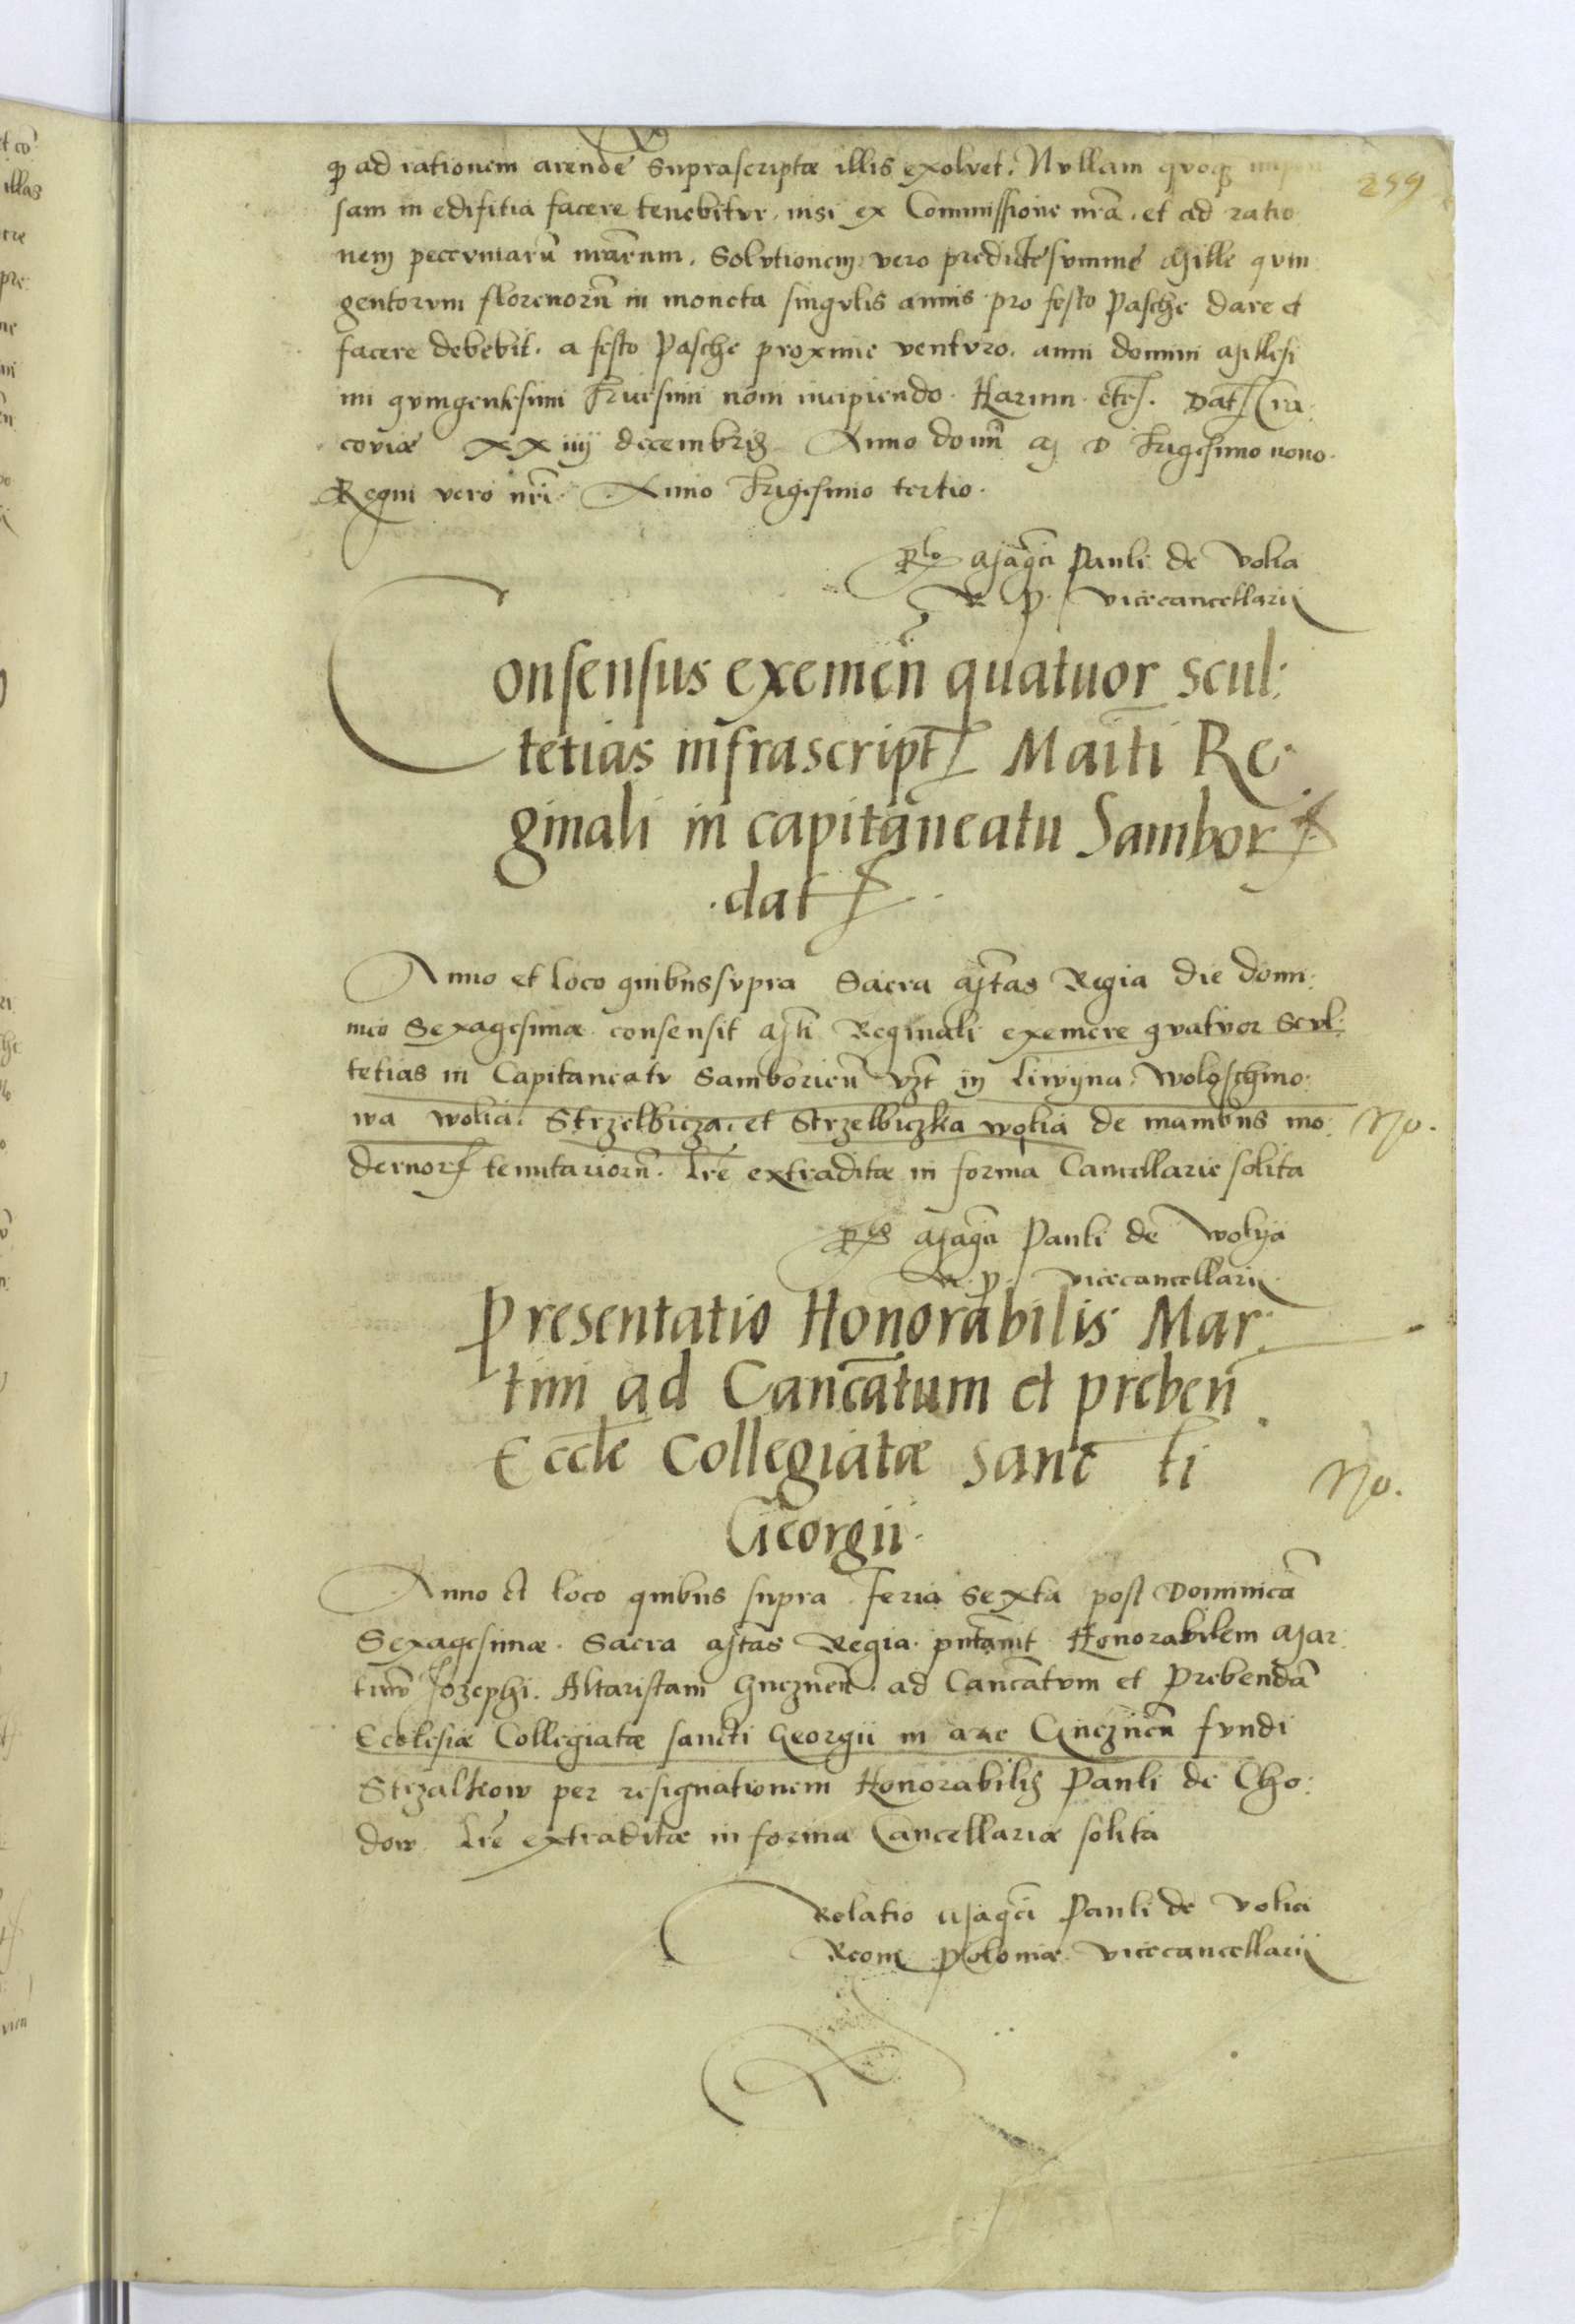 259
ꝙ ad rationem arende suprascriptæ illis exolvet. Nvllam qvoqꝫ
sam in edifitia facere tenebitvr, nisi ex Commissione nr̃a, et ad ratio
nem peccvniarũ nr̃arum. Solvtionem vero predicte svmme Mille qvin
gentorvm florenorũ in moneta singvlis annis pro festo Pasche dare et
facere debebit. a festo Pasche proxime ventvro. anni domini Millesi
mi qvingentesimi Tricesimi noni incipiendo. Harum etc. Dat Cra
coviæ XXiiij decembris Anno domĩ M D Trigesimo nono.
Regni vero nr̃i Anno Trigesimo tertio.
Rlo Magci Pauli de Volia
R. P. vicecancellarij
Consensus exemeñ quatuor scul:
tetias infrascript Maiti Re
ginali in capitaneatu Sambor
dat
Anno et loco quibus svpra Sacra Mtas Regia die domi:
nico Sexagesimæ consensit Mti Reginali exemere qvatvor scvl:
tetias in Capitaneatv Samborieñ vzt in Liwyna, Woloschino:
wa wolia, Strzelbicza, et Strzelbiczka wolia de manibus mo: No.
dernor tenutariorũ. Lr̃e extraditæ in forma Cancellarie solita
Rlo Magci Pauli de Wolya
R. P. vicecancellarij
Presentatio Honorabilis Mar:
tini ad Canc̃atum et prebeñ
Eccl̃e Collegiatæ sanc ti No.
Georgii.
Anno et loco quibus supra feria sexta post Dominicã
Sexagesimæ. Sacra Mtas Regia pñtavit Honorabilem Mar:
tinũ Jozephi. Altaristam Gnezneñ. ad Canc̃atvm et Prebendã
Ecclesiæ Collegiatæ sancti Georgii in arce Gnezneñ fvndi
Strzalkow per resignationem Honorabilis Pauli de Cho:
dow Lr̃e extraditæ in forma Cancellariæ solita
Relatio Magci Pauli de Volia
Regni Poloniæ vicecancellarij